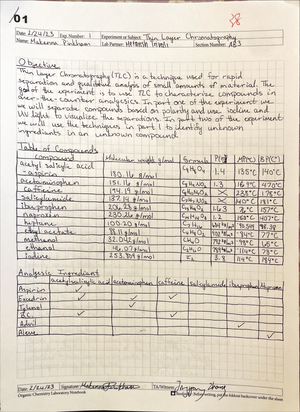 01
Date 2/24/23 Exp. Number: 1 Experiment or Subject: Thin Layer Chromatography
Name: Makenna Pinkham Lab Partner: Section Number: 183
Objective
Thin Layer Chromatography (TLC) is a technique used for rapid
separation and qualitative analysis of small amounts of material. The
goal of the experiment is to use TLC to characterize compounds in
over-the-counter analgesics. In part one of the experiment we
will separate compounds based on polarity and use iodine and
UV light to visualize the separations. In part two of the experiment,
we will use the techniques in part 1 to identify unknown
ingredients in an unknown compound.
Table of Compounds
compound Molecular weight g/mol Formula MP(C) BP(C)
acetyl salicylic acid
- aspirin 180.16 g/mol C9H8O4 1.4 135°C 140°C
acetaminophen 151.16 g/mol 1.3 169°C 420°C
caffeine 194.19 g/mol 178°C
salicylamide 137.14 g/mol 140°C 181°C
ibuprofen 206.28 g/mol 76°C 157°C
naproxen 230.26 g/mol 1.2
heptane 100.20 g/mol
ethyl acetate 88.11 g/mol 77°C
methanol 32.042 g/mol 65°C
ethanol 46.07 g/mol 78°C
iodine 253.809 g/mol I2 3.8 114°C 184°C
Analysis Ingredient
acetylsalicylic acid acetaminophen caffeine salicylamide ibuprofen naproxen
Aspirin ✓
Excedrin ✓ ✓ ✓
Tylenol ✓
B.C. ✓ ✓
Advil ✓
Aleve ✓
Date 2/24/23 Signature: Makenna Pinkham TA/Witness:
Organic Chemistry Laboratory Notebook